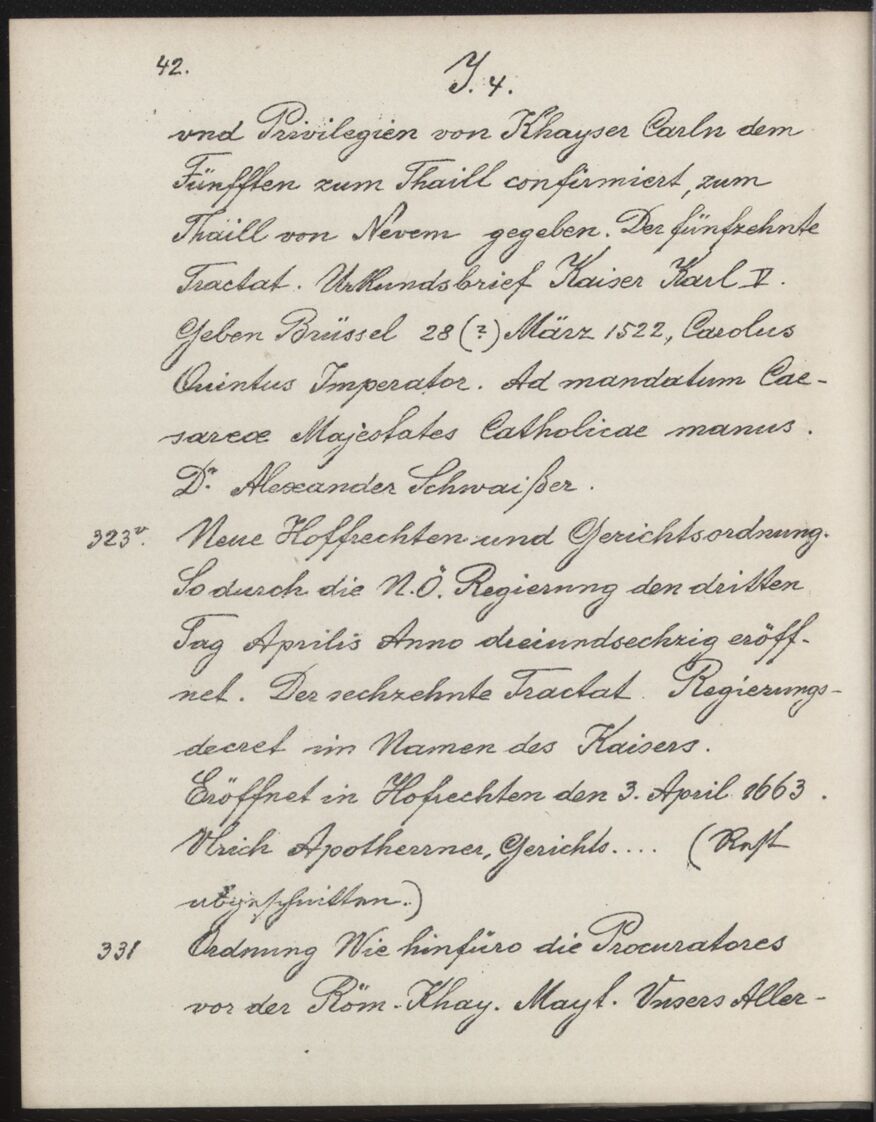 42.
I. 4.
vnd Privilegien von Khayser Carln dem
Fünfften zum Thaill confirmiert, zum
Thaill von Nevem gegeben. Der fünfzehnte
Tractat. Urkundsbrief Kaiser Karl V.
Geben Brüssel 28 (?) März 1522, Carolus
Quintus Imperator. Ad mandatum Cae-
sareae Majestates Catholicae manus.
Dr. Alexander Schwaißer.
323v. Neue Hoffrechten und Gerichtsordnung.
So durch die N.Ö. Regierung den dritten
Tag Aprilis Anno dreiundsechzig eröff-
net. Der sechzehnte Tractat. Regierungs-
decret im Namen des Kaisers.
Eröffnet in Hofrechten den 3. April 1663.
Vlrich Apotherrner, Gerichts.... (Rest
abgeschnitten.)
331 Ordnung Wie hinfüro die Procuratores
vor der Röm. Khay. Mayt. Vnsers Aller-